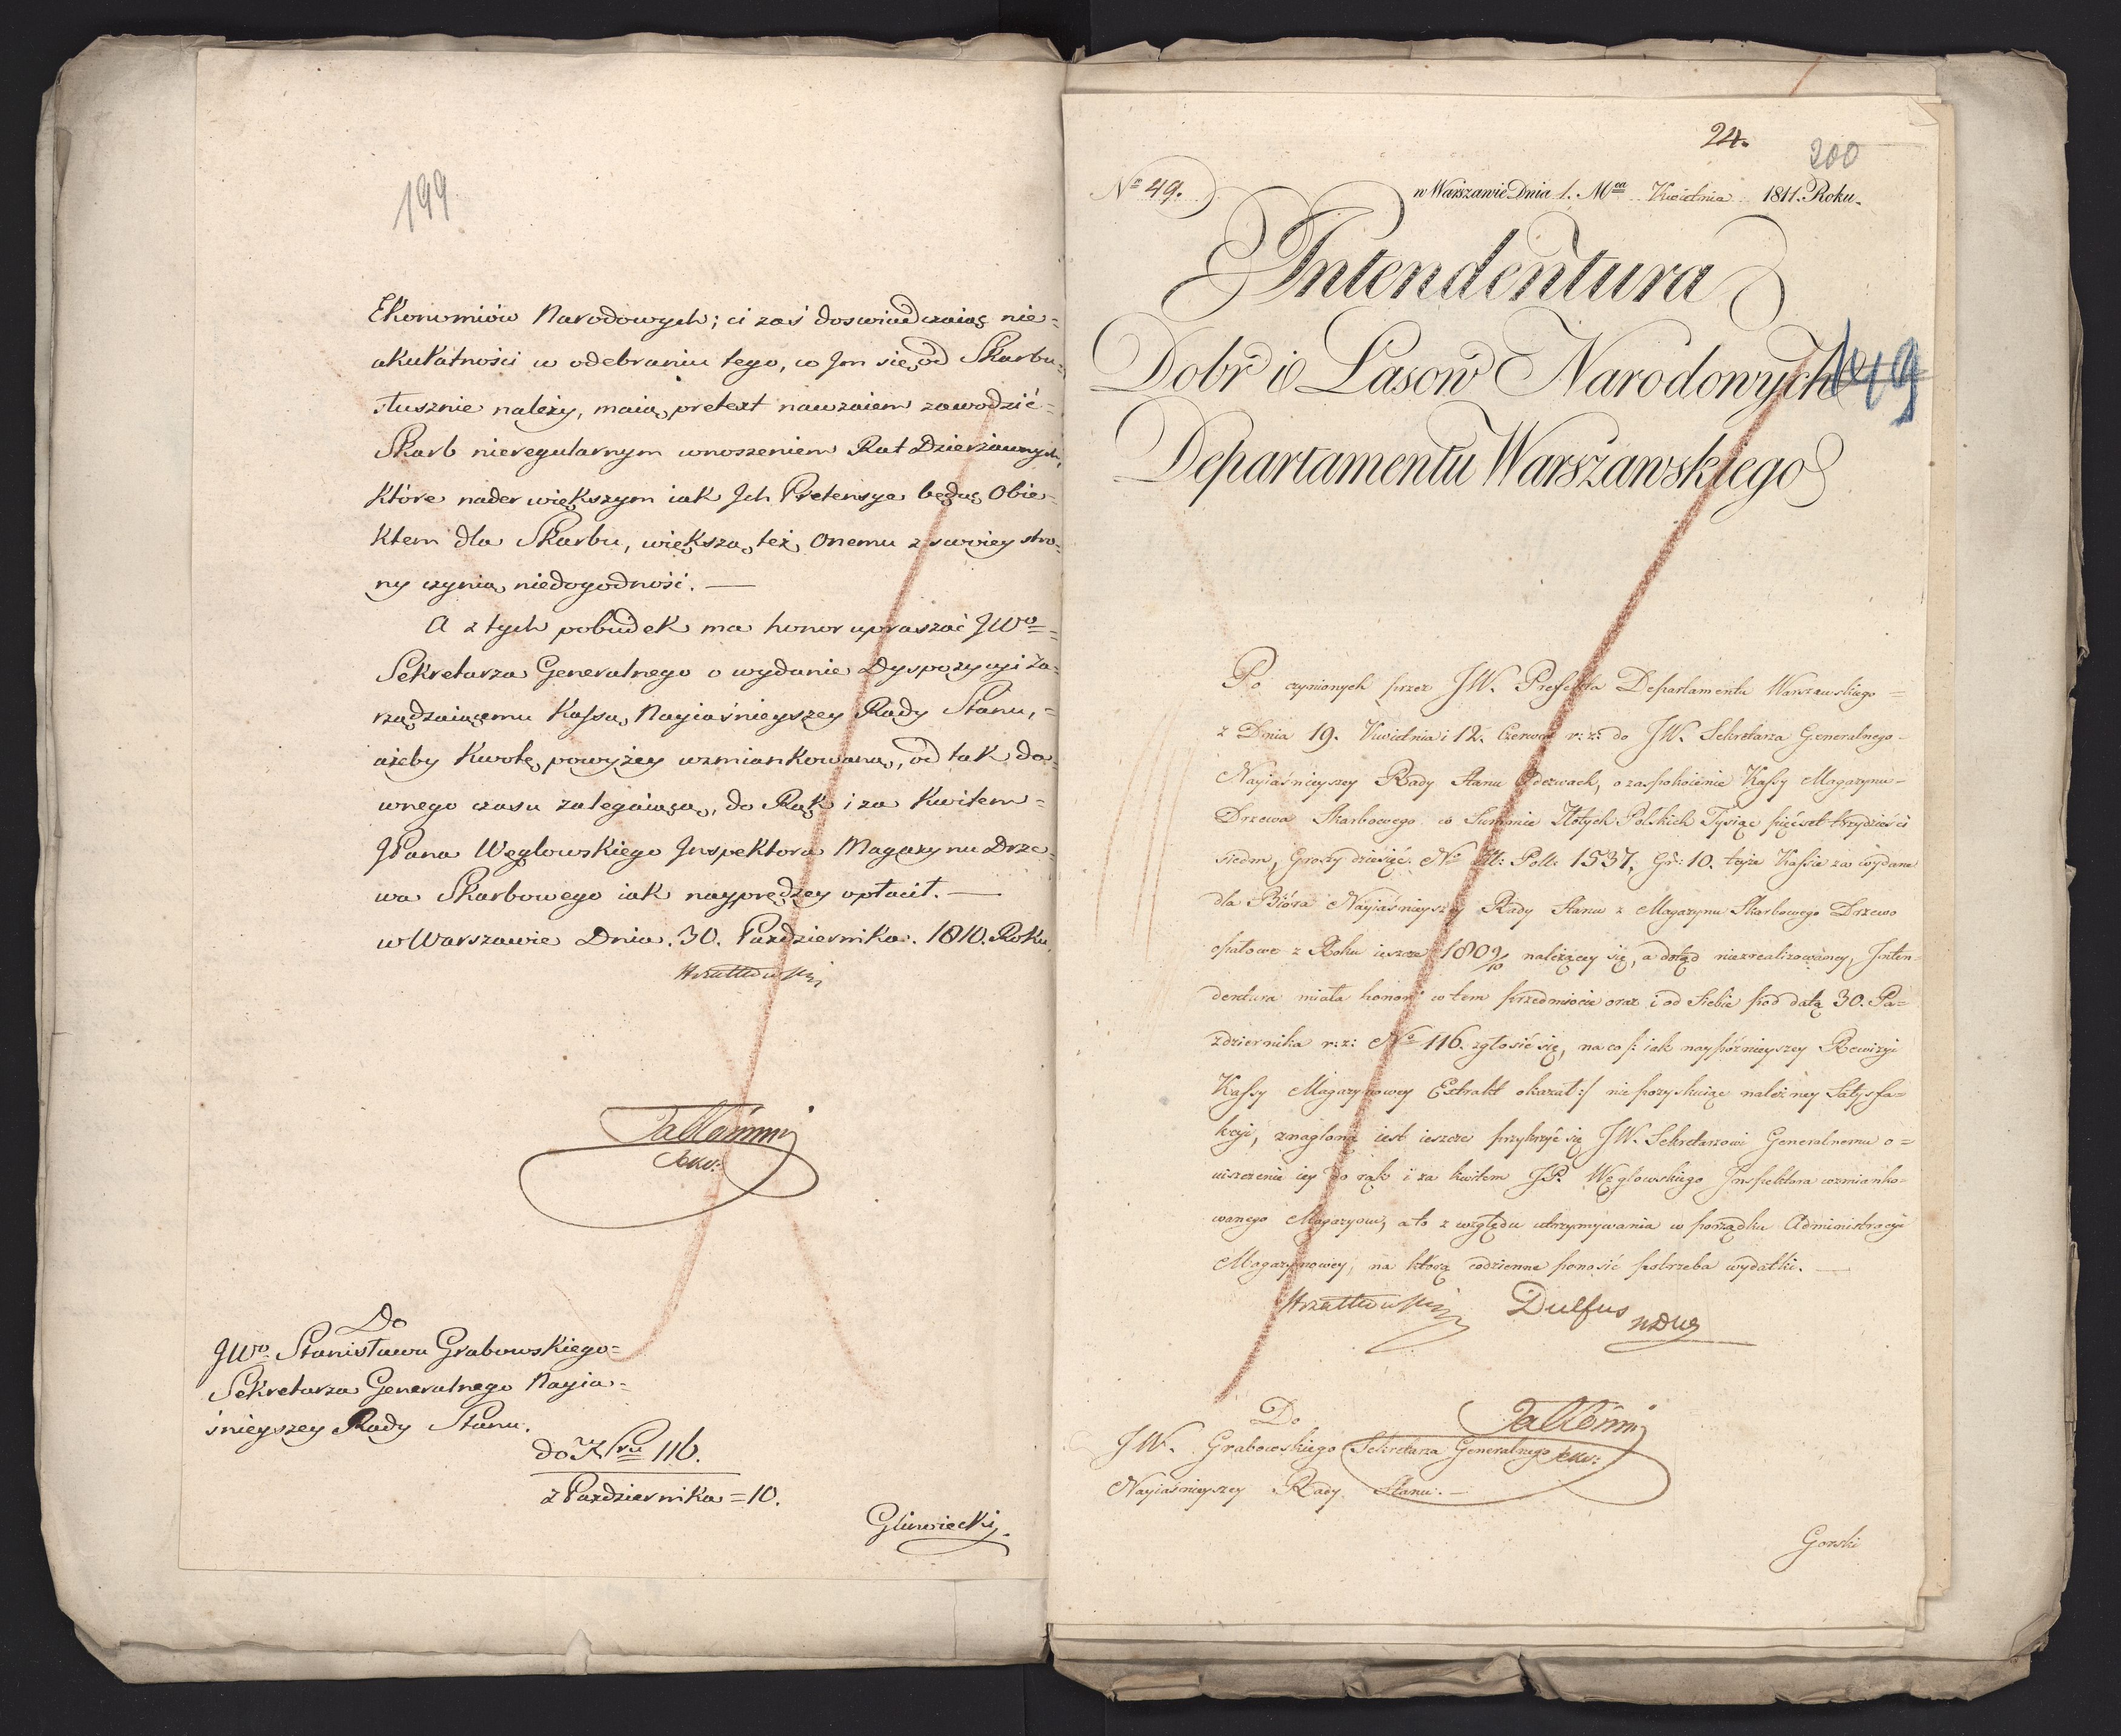 199.
Ekonomiów Narodowych; ci zaś doswiadczaiąc nie=
akuŕatności w odebraniu tego, co Jm się od Skarbu=
słusznie należy, maią pretext nawzaiem zawodzić=
Skarb nieregularnym wnoszeniem Rat Dzierżawnych,
które nader większym iak Jch Pretensye będąc Obie=
ktem dla Skarbu, większą też Onemu z swoiey stro=
ny czynią niedogodność. —
A z tych pobudek ma honor upraszać JWo=
Sekretarza Generalnego o wydanie Dyspozycyi Za=
rządzaiącemu Kassą Nayiaśnieyszey Rady Stanu,=
ażeby Kwotę powyżey wzmiankowaną, od tak da=
wnego czasu zalegaiącą, do Rąk i za Kwitem=
JPana Węglowskiego Jnspektora Magazynu Drze=
wa Skarbowego iak nayprędzey opłacił. —
w Warszawie Dnia. 30. Października. 1810. Roku.
Do
JWo. Stanisława Grabowskiego=
Sekretarza Generalnego Nayia=
śnieyszey Rady Stanu.
do Nru 116.
z Października = 10.
Gliniecki.
24.
200
No 49.
w Warszawie Dnia 1. Mca Kwietnia 1811. Roku.
Intendentura
Dobr i Lasow Narodowych
Departamentu Warszawskiego
Po czynionych przez JW. Prefekta Departamentu Warszawskiego=
z Dnia 19. Kwietnia i 12. Czerwca r: z: do JW. Sekretarza Generalnego=
Nayiaśnieyszey Rady Stanu Odezwach, o zaspokoienie Kassy Magazynu=
Drzewa Skarbowego w Summie Złotych Polskich Tysiąc pięćset trzydzieści
siedm, Groszy dziesięć. No Zł: Pol: 1537. Gr: 10. teyże Kassie za wydane
dla Bióra Nayiaśnieyszey Rady Stanu z Magazynu Skarbowego Drzewo
opałowe z Roku ieszcze 1809/10 należącey się, a dotąd niezrealizowaney, Inten=
dentura miała honor w tem przedmiocie oraz i od Siebie pod datą 30. Pa=
zdziernika r: z: No 116. zgłosić się, na co /: iak naypóźnieyszey Rewizyi
Kassy Magazynowey Extrakt okazał :/ nie pozyskuiąc należney Satysfa=
kcyi, znagloną iest ieszcze przykrzyć się JW. Sekretarzowi Generalnemu o=
uiszczenie iey do rąk i za kwitem JP. Węglowskiego Jnspektora wzmianko=
wanego Magazynu, a to z względu utrzymywania w porządku Administracyi
Magazynowey, na którą codzienne ponosić potrzeba wydatki. —
Dulfus
Do
JW. Grabowskiego Sekretarza Generalnego
Nayiaśnieyszey Rady Stanu. —
Gorski